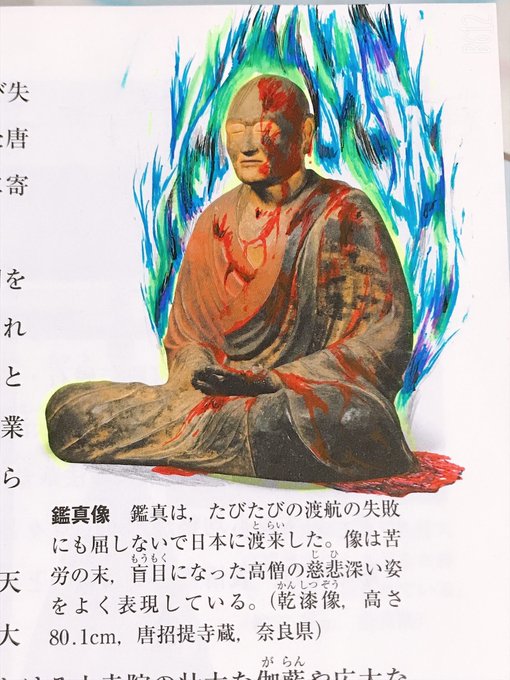 B612
失
唐
寄
を
れ
と
業
ら
天
大
鑑真像 鑑真は，たびたびの渡航の失敗
とらい
にも屈しないで日本に渡来した。像は苦
もうもく じひ
労の末，盲目になった高僧の慈悲深い姿
かんしつぞう
をよく表現している。（乾漆像，高さ
80.1cm，唐招提寺蔵，奈良県）
がらん
伽藍や広大な